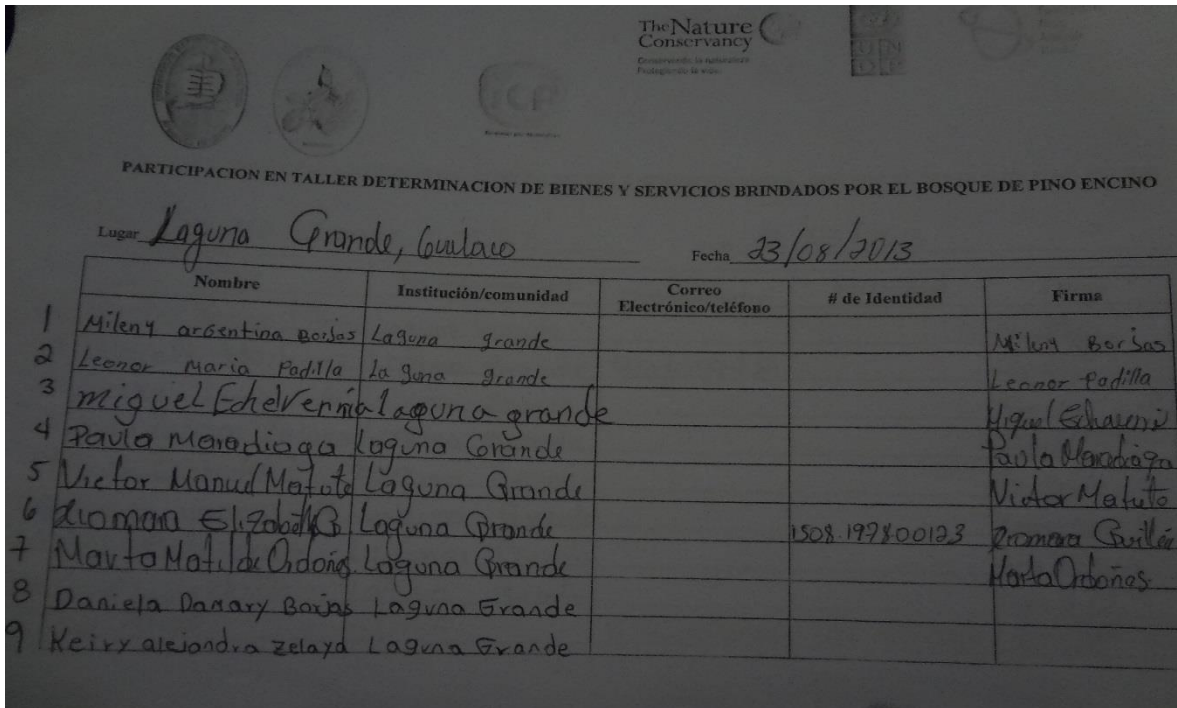 The Nature
Conservancy
Conserviendo la naturaleza
Protegiendo la vida
ICF
PARTICIPACION EN TALLER DETERMINACION DE BIENES Y SERVICIOS BRINDADOS POR EL BOSQUE DE PINO ENCINO
Lugar Laguna Grande, Gualaco Fecha 23/08/2013
Nombre Institución/comunidad Correo Electrónico/teléfono # de Identidad Firma
1 Mileny argentina Borjas Laguna grande Mileny Borjas
2 Leonor Maria Padilla laguna grande Leonor Padilla
3 miguel Echeverria laguna grande Miguel Echaverri
4 Paula Maradiaga Laguna Grande Paula Maradiaga
5 Victor Manuel Matute Laguna Grande Victor Matute
6 Elizabeth G Laguna Grande 1508.1978.00123 Guillén
7 Marta Matilde Ordoñes Laguna Grande Marta Ordoñes
8 Daniela Damary Borjas Laguna Grande
9 Keiry alejandra zelaya Laguna Grande